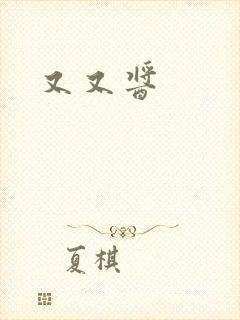 又又醬
夏棋